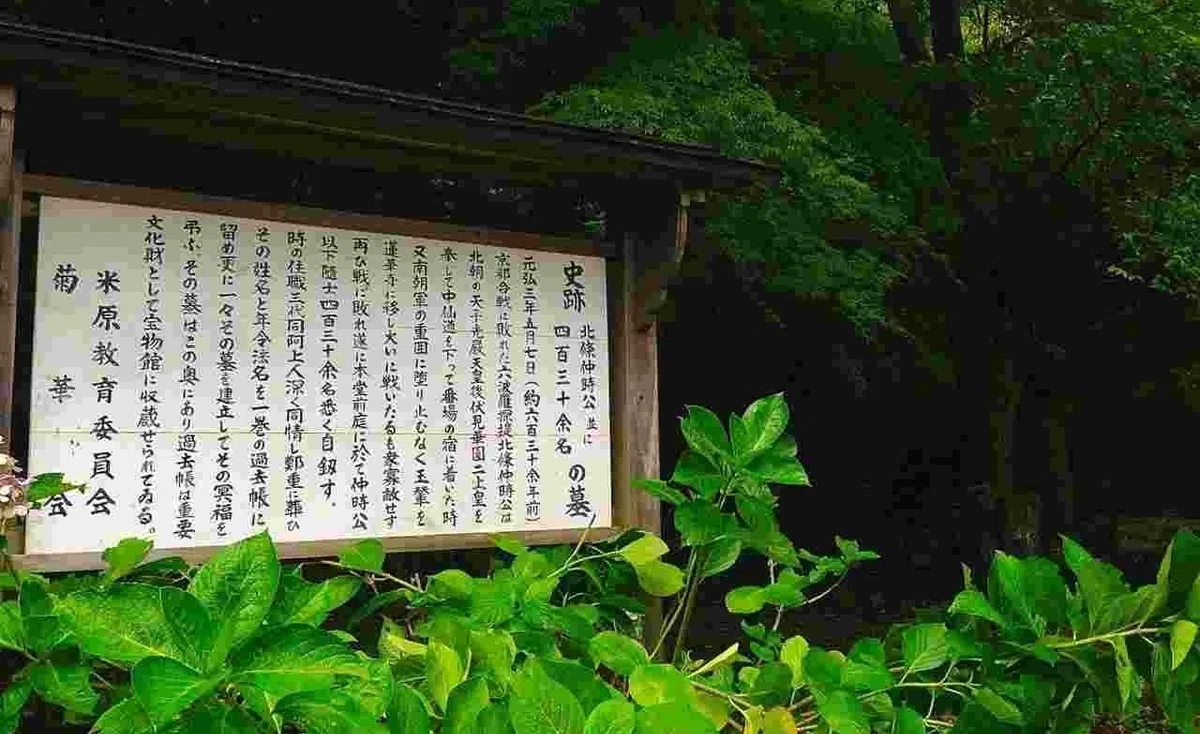 史跡 北條仲時公 並に 四百三十余名 の墓
元弘三年五月七日（約六百三十余年前）
京都合戦に敗れた六波羅探提北條仲時公は
北朝の天子光嚴天皇後伏見華園二上皇を
奉して中仙道を下って番場の宿に着いた時
又南朝軍の重囲に墮り止むなく玉輦を
蓮華寺に移し大いに戦いたるも衆寡敵せず
再び戦に敗れ遂に本堂前庭に於て仲時公
以下随士四百三十余名悉く自釼す。
時の住職三代同阿上人深く同情し鄭重に葬ひ
その姓名と年令法名を一巻の過去帳に
留め更に一々その墓を建立してその冥福を
弔ふ。その墓はこの奥にあり過去帳は重要
文化財として宝物館に収蔵せられてゐる。
米原教育委員会
菊華会